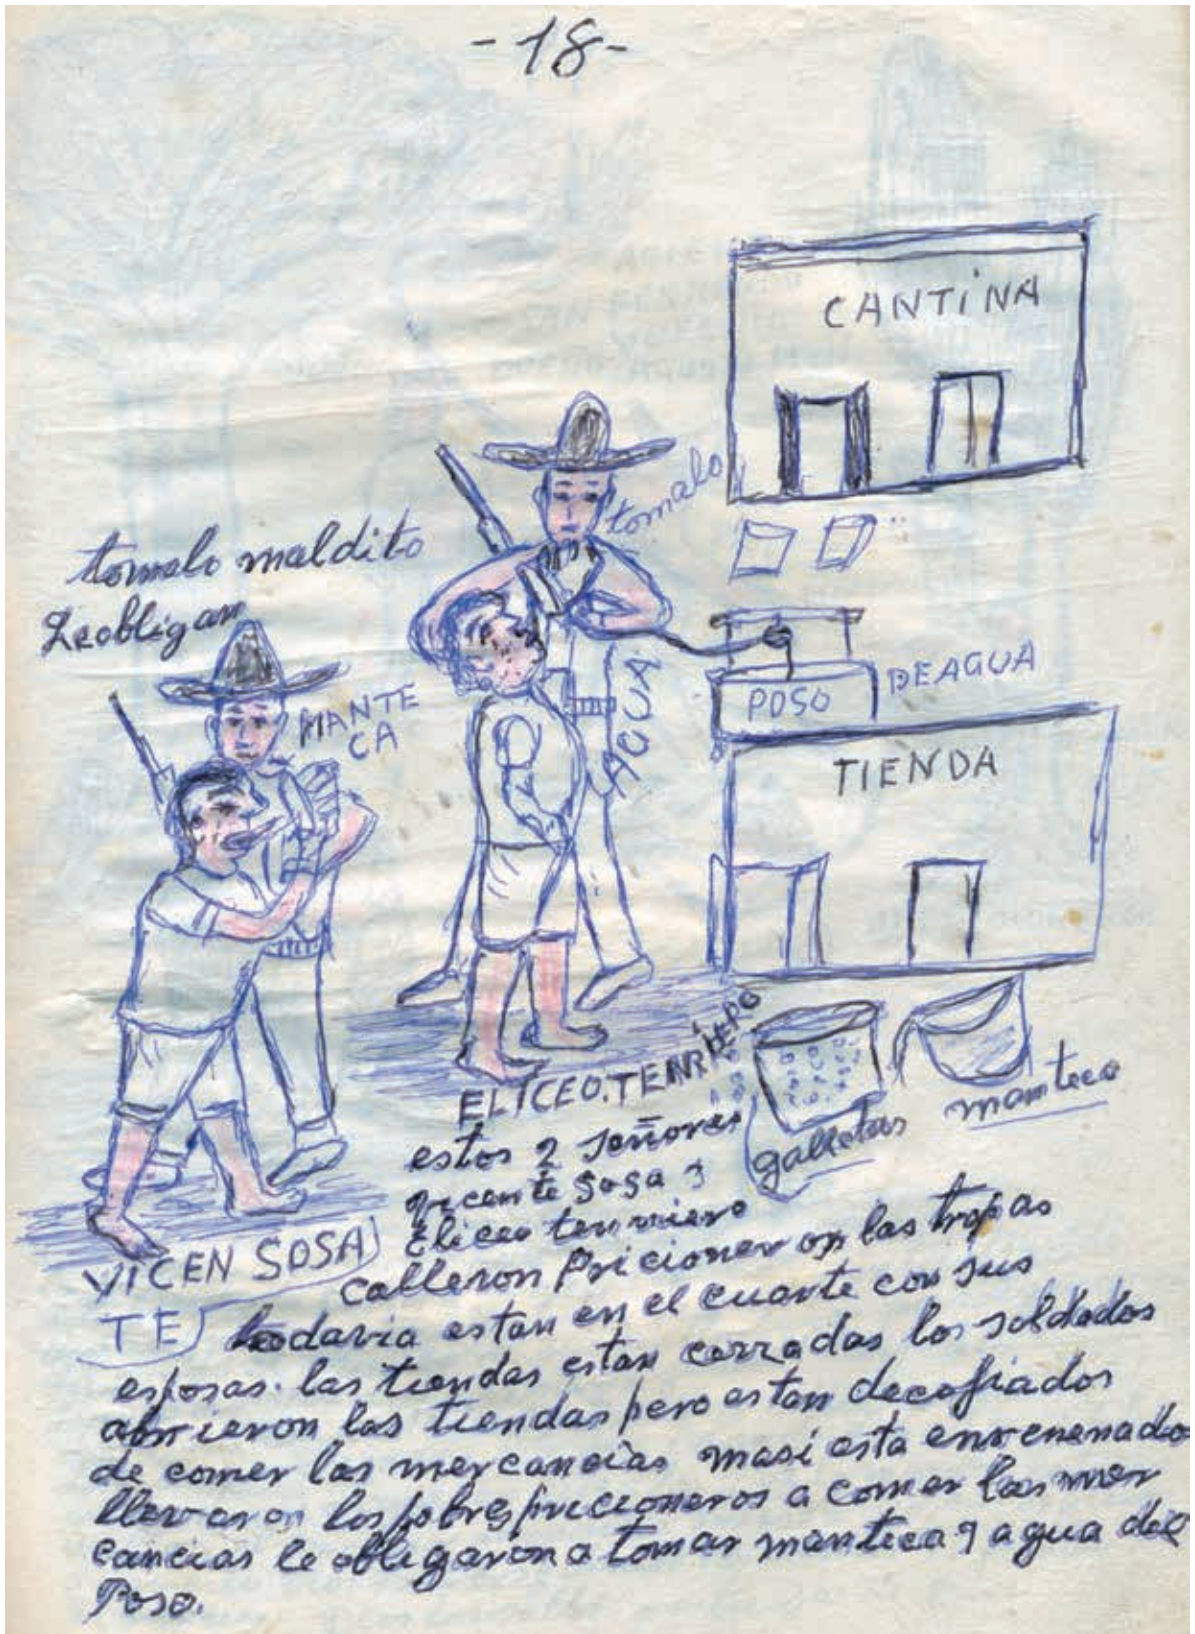 -18-
CANTiNA
tomalo
tomalo maldito
leobligan
MANTE
CA
AGUA
POSO
DEAGUA
TIENDA
ELICEO.TENRRIERO
galletas
manteca
VICEN SOSA
TE
estos 2 señores
vicente sosa y
Eliceo tenrriero
calleron Pricioner op las tropas
todavia estan en el cuarte con sus
esposas. las tiendas estan cerradas los soldados
abrieron las tiendas pero estan decofiados
de comer las mercancias masi esta envenenado
llevaron los pobres pricioneros a comer las mer
cancias le obligaron a tomar manteca y agua del
Poso.